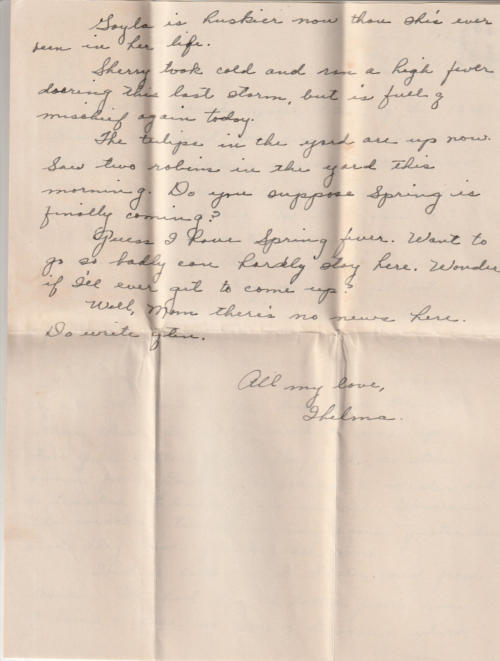 Gayla is huskier now than she's ever
been in her life.
Sherry took cold and ran a high fever
doering this last storm, but is full of
mischief again today.
The tulips in the yard are up now.
Saw two robins in the yard this
morning. Do you suppose Spring is
finally coming?
Guess I have Spring fever. Want to
go so badly can hardly stay here. Wonder
if I'll ever get to come up?
Well, Mom there's no news here.
Do write often.
All my love,
Thelma.